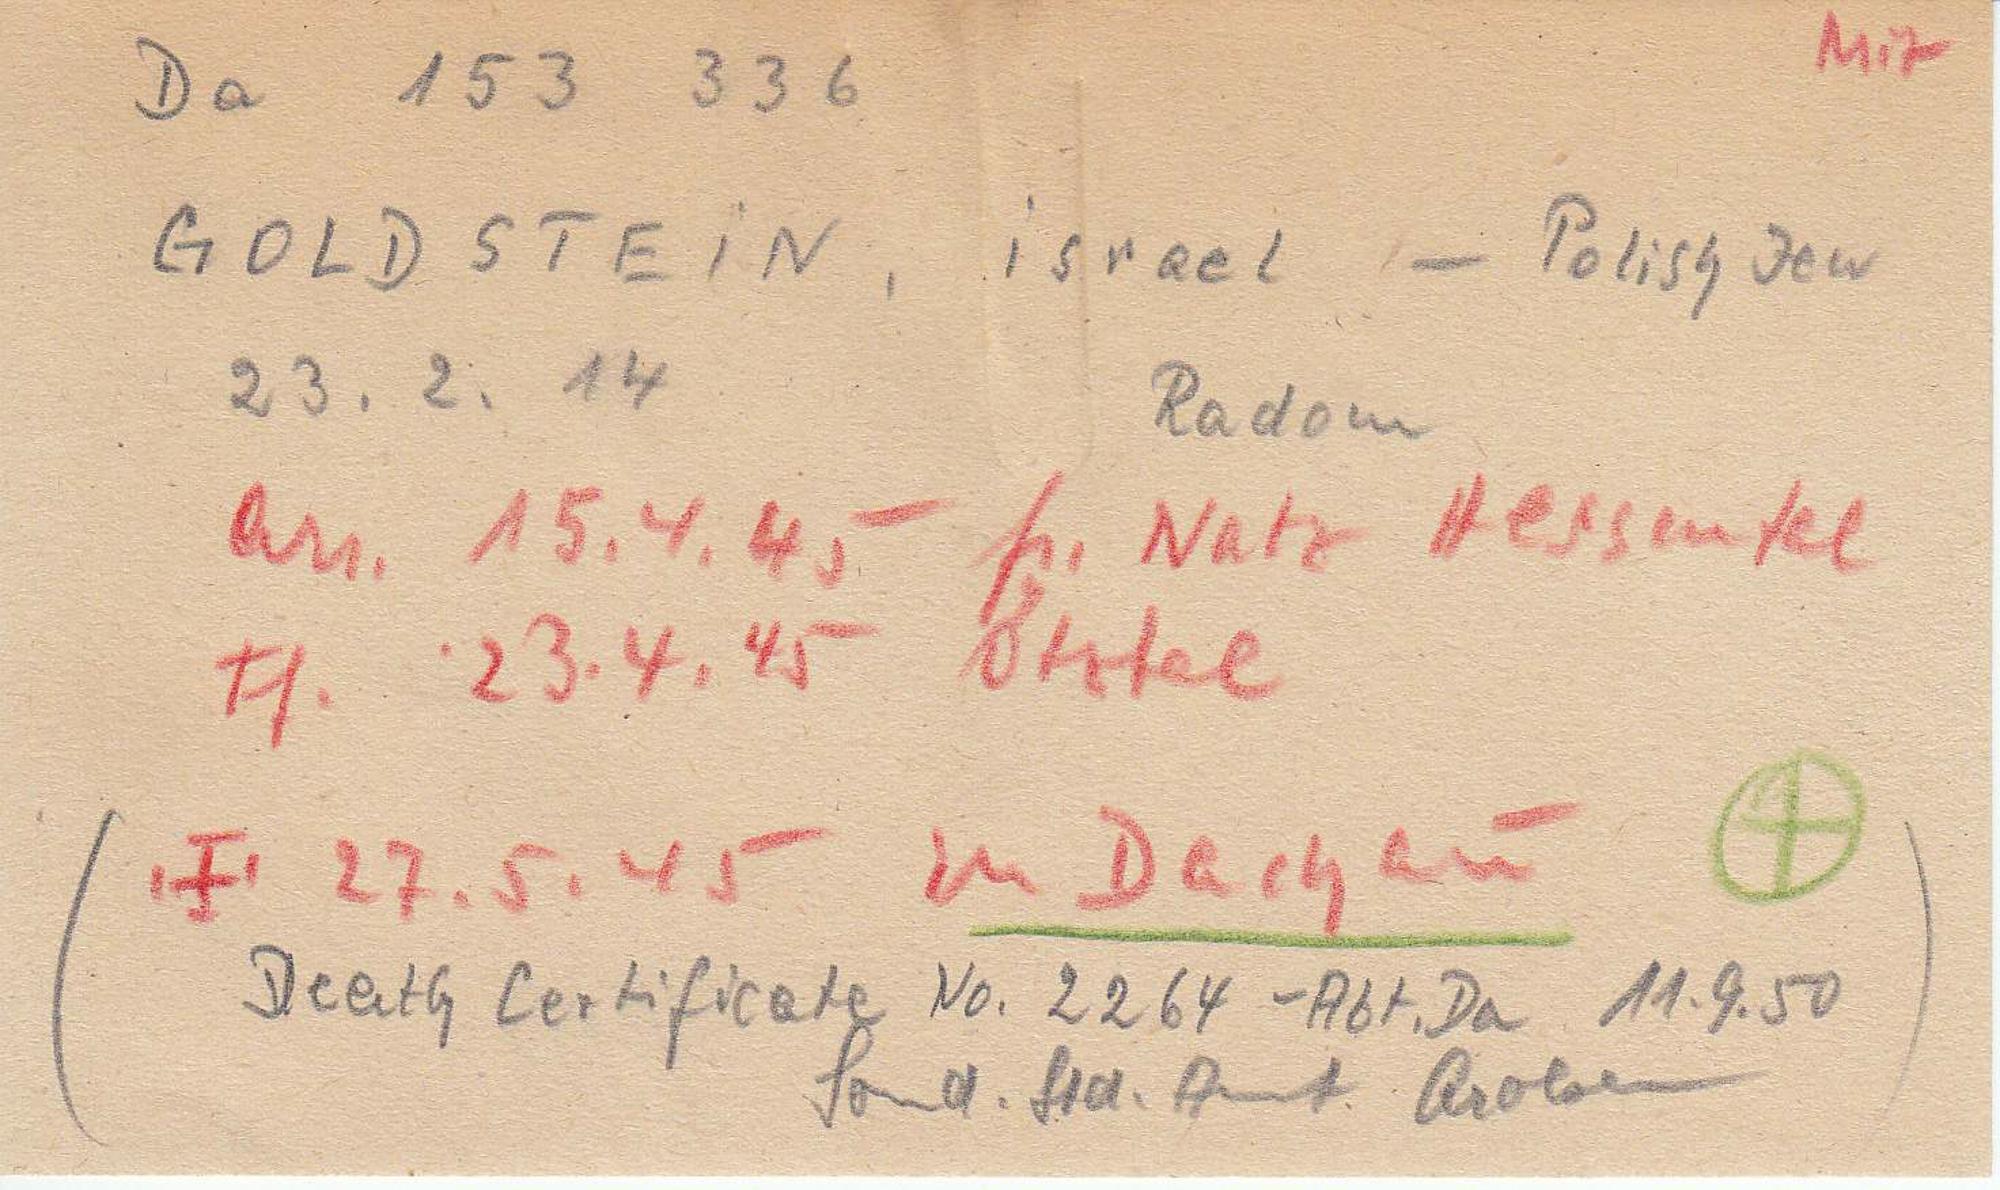 Mit
Da 153 336
GOLDSTEiN, israel — Polish Jew
23. 2. 14 Radom
arr. 15.4.45 fr. Natz Hessental
tf. 23.4.45 Ötztal
27.5.45 in Dachau
Death Certificate No. 2264 - Abt. Da 11.9.50
Sond. Std. Amt. Arolsen